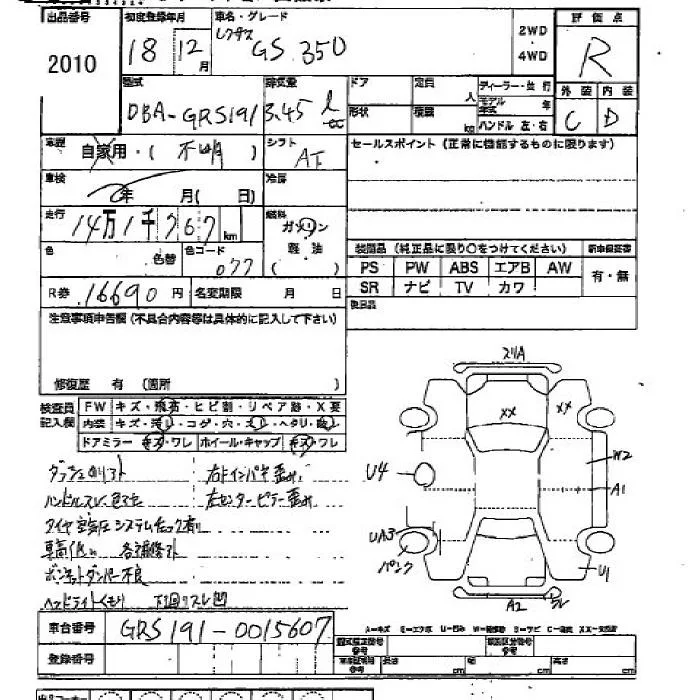 出品番号
2010
初度登録年月
18 12月
車名・グレード
レクサス GS 350
2WD
4WD
評価点
R
型式
DBA-GRS191
排気量
3.45 ℓ cc
ドア
形状
定員
人
積載
kg
ディーラー・並行
モデル年式 年
ハンドル 左・右
外装 内装
C D
車歴
自家用・(不明)
シフト
AT
セールスポイント(正常に機能するものに限ります)
車検
年 月(日)
冷房
走行
14万1千767km
燃料
ガソリン
軽油
( )
色
色替
色コード
077
装備品(純正品に限り○をつけてください)
新車保証書
PS PW ABS エアB AW
SR ナビ TV カワ
有・無
R券 16690円
名変期限 月 日
注意事項申告欄(不具合内容等は具体的に記入して下さい)
修復歴 有(箇所 )
検査員記入欄
FW キズ・飛石・ヒビ割・リペア跡・X要
内装
ドアミラー キズ・ワレ ホイール・キャップ キズ・ワレ
右インパネ歪み
ハンドルスレ
左センターピラー歪み
タイヤ空気圧システムチェック有り
車高低い 各部補修跡
ボンネットダンパー不良
ヘッドライトくもり 下回りスレ凹
スリA
XX
XX
W2
A1
U4
UA3
パンク
U1
A2
ワレ
車台番号
GRS191-0015607
登録番号
A=キズ E=エクボ U=凹み W=補修跡 S=サビ C=腐食 XX=交換済
型式指定番号
類別区分番号
参考
長さ cm
幅 cm
高さ cm